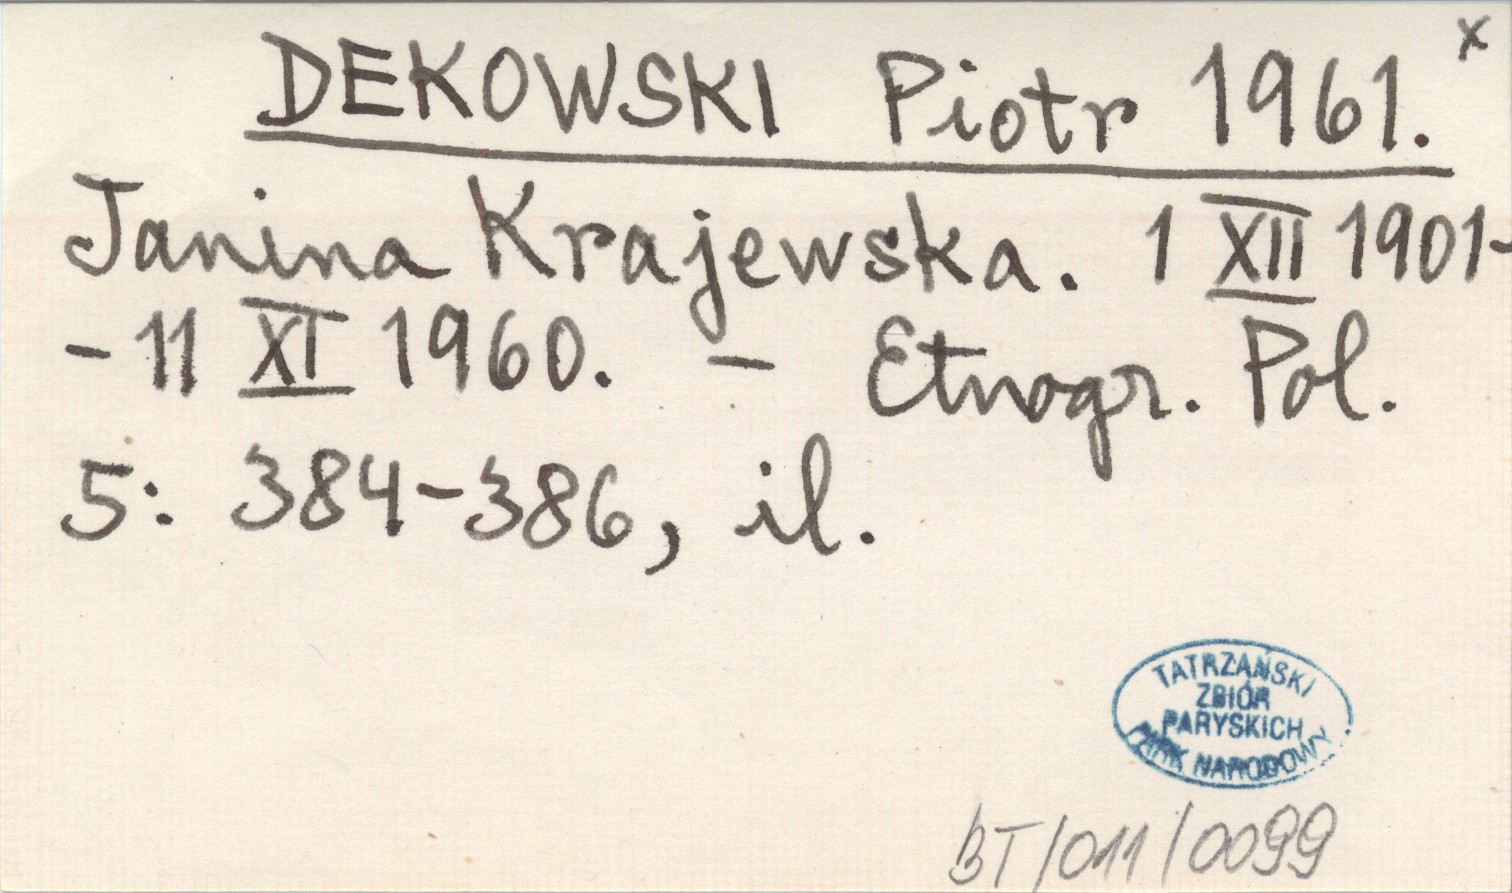 DEKOWSKI Piotr 1961. x
Janina Krajewska. 1 XII 1901-
- 11 XI 1960. - Etnogr. Pol.
5: 384-386, il.
TATRZAŃSKI
ZBIÓR
PARYSKICH
PARK NARODOWY
BT/011/0099